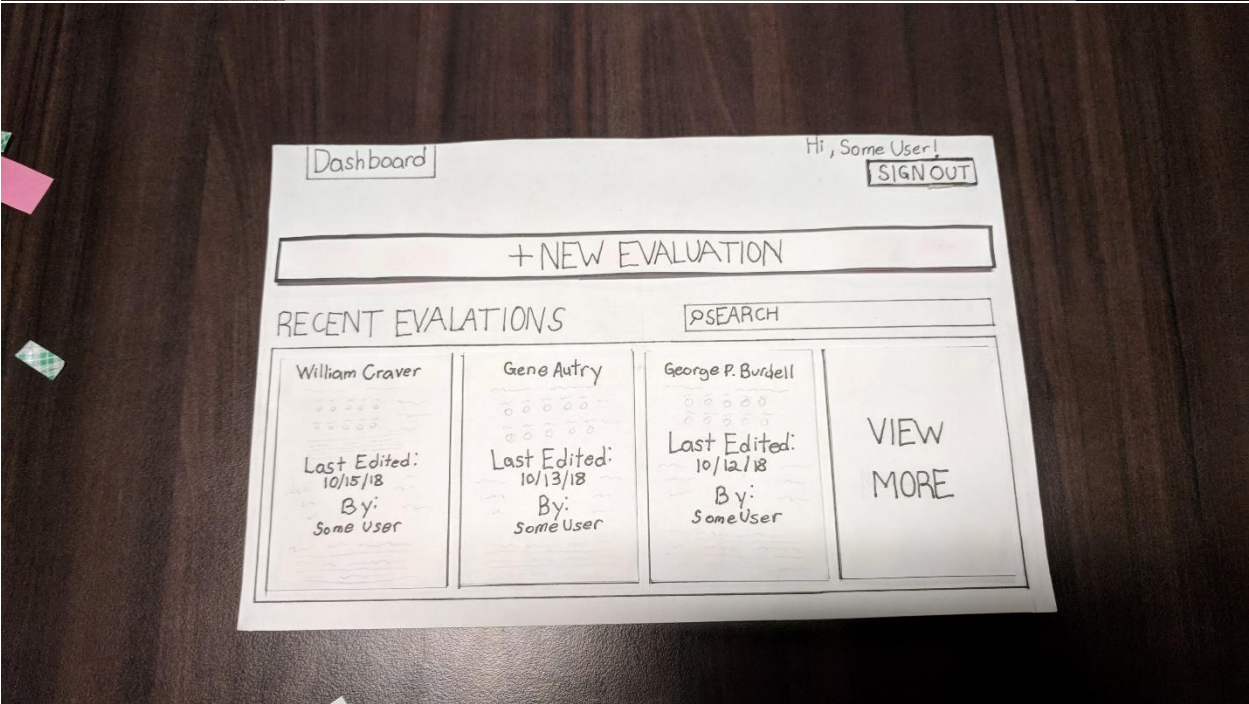 Dashboard
Hi, Some User!
SIGN OUT
+ NEW EVALUATION
RECENT EVALATIONS
SEARCH
William Craver
Last Edited:
10/15/18
By:
Some User
Gene Autry
Last Edited:
10/13/18
By:
Some User
George P. Burdell
Last Edited:
10/12/18
By:
Some User
VIEW
MORE